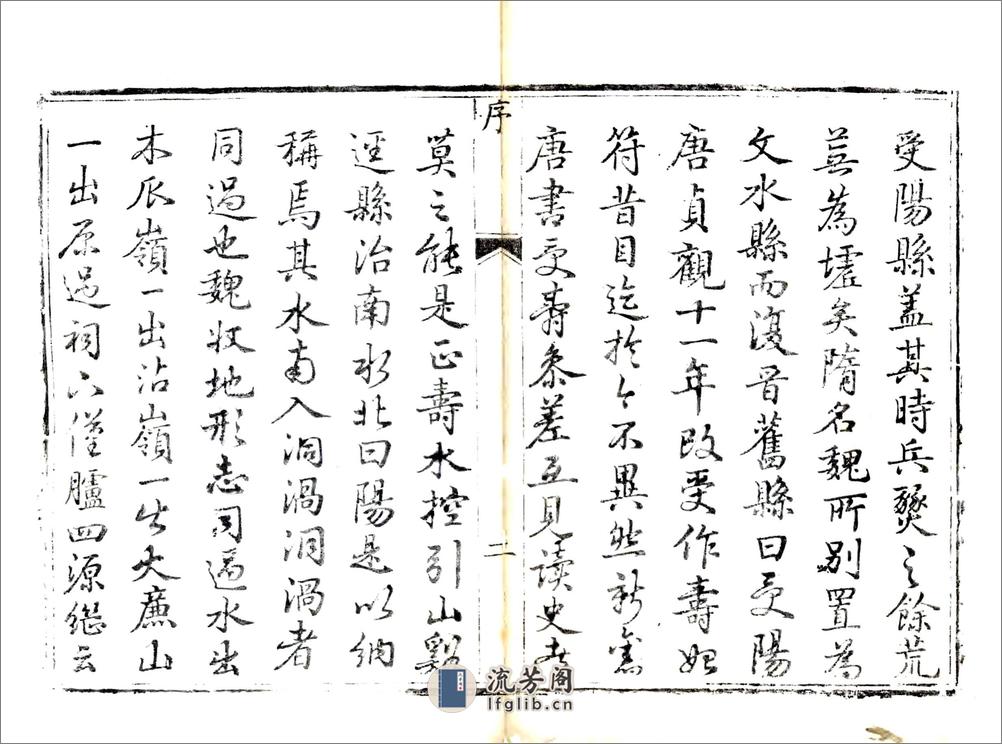 受陽縣蓋其時兵燹之餘荒
蕪為墟矣隋名魏所別置為
文水縣而復晉舊縣曰受陽
唐貞觀十一年改受作壽始
符昔目迄於今不異然新舊
唐書受壽叅差互見读史者
序
二
莫之能是正壽水控引山谿
逕縣治南水北曰陽是以納
稱焉其水南入洞渦洞渦者
同過也魏收地形志同過水出
木瓜嶺一出沾嶺一出大廉山
一出原過祠下僅臚四源繼云
流芳阁
lfglib.cn